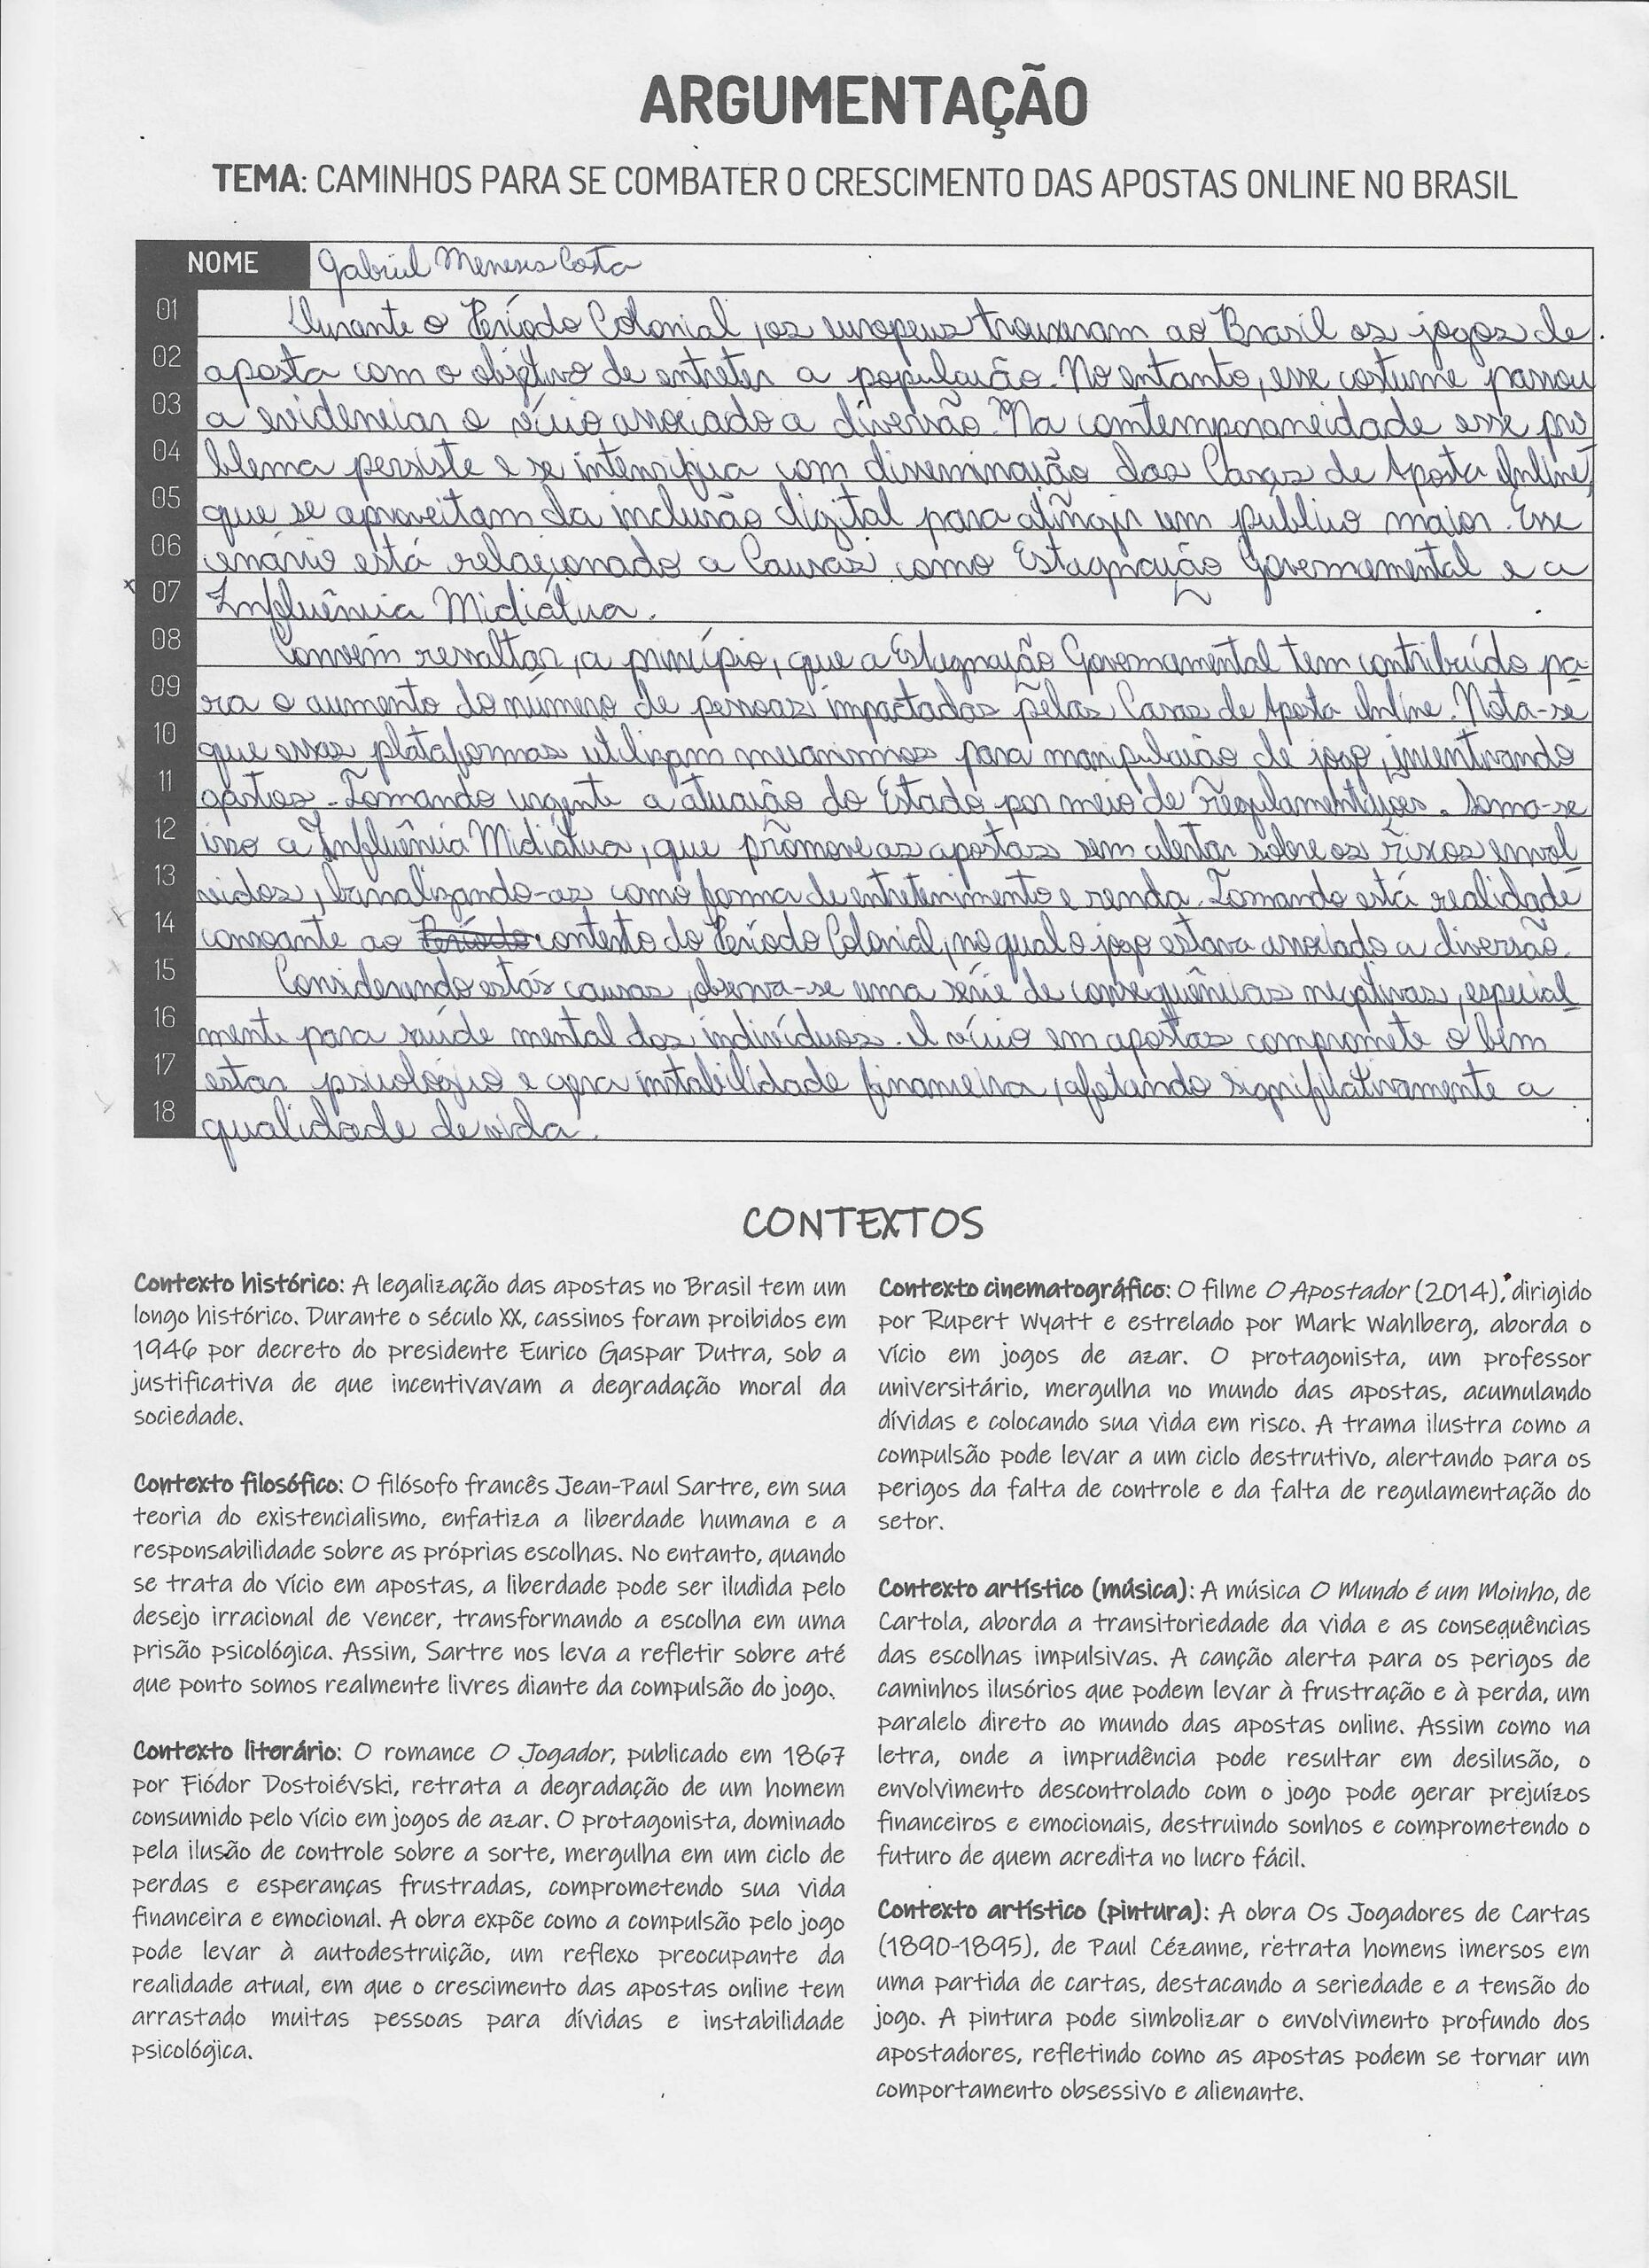 ARGUMENTAÇÃO
TEMA: CAMINHOS PARA SE COMBATER O CRESCIMENTO DAS APOSTAS ONLINE NO BRASIL
NOME Gabriel Meneses Costa
01 Durante o Período Colonial, os europeus trouxeram ao Brasil os jogos de
02 aposta com o objetivo de entreter a população. No entanto, esse costume passou
03 a evidenciar o vício associado a diversão. Na comtemporaneidade esse pro
04 blema persiste e se intensifica com disseminação das Casas de Aposta Online,
05 que se aproveitam da inclusão digital para atingir um público maior. Esse
06 cenário está relacionado a Causas como Estagnação Governamental e a
07 Influência Midiática.
08 Convém ressaltar, a princípio, que a Estagnação Governamental tem contribuído pa-
09 ra o aumento do número de pessoas impactadas pelas Casas de Aposta Online. Nota-se
10 que essas plataformas utilizam mecanismos para manipulação de jogo, incentivando
11 gastos. Tornando urgente a atuação do Estado por meio de Regulamentações. Soma-se
12 isso a Influência Midiática, que promove as apostas sem alertar sobre os riscos envol
13 vidos, banalizando-as como forma de entretenimento e renda. Tornando está realidade
14 consoante ao Período contexto do Período Colonial, no qual o jogo estava associado a diversão.
15 Considerando estás causas, observa-se uma série de consequências negativas, especial
16 mente para saúde mental dos indivíduos. O vício em apostas compromete o bem
17 estar psicológico e gera instabilidade financeira, afetando significativamente a
18 qualidade de vida.
CONTEXTOS
Contexto histórico: A legalização das apostas no Brasil tem um
longo histórico. Durante o século XX, cassinos foram proibidos em
1946 por decreto do presidente Eurico Gaspar Dutra, sob a
justificativa de que incentivavam a degradação moral da
sociedade.
Contexto filosófico: O filósofo francês Jean-Paul Sartre, em sua
teoria do existencialismo, enfatiza a liberdade humana e a
responsabilidade sobre as próprias escolhas. No entanto, quando
se trata do vício em apostas, a liberdade pode ser iludida pelo
desejo irracional de vencer, transformando a escolha em uma
prisão psicológica. Assim, Sartre nos leva a refletir sobre até
que ponto somos realmente livres diante da compulsão do jogo.
Contexto literário: O romance O Jogador, publicado em 1867
por Fiódor Dostoiévski, retrata a degradação de um homem
consumido pelo vício em jogos de azar. O protagonista, dominado
pela ilusão de controle sobre a sorte, mergulha em um ciclo de
perdas e esperanças frustradas, comprometendo sua vida
financeira e emocional. A obra expõe como a compulsão pelo jogo
pode levar à autodestruição, um reflexo preocupante da
realidade atual, em que o crescimento das apostas online tem
arrastado muitas pessoas para dívidas e instabilidade
psicológica.
Contexto cinematográfico: O filme O Apostador (2014), dirigido
por Rupert Wyatt e estrelado por Mark Wahlberg, aborda o
vício em jogos de azar. O protagonista, um professor
universitário, mergulha no mundo das apostas, acumulando
dívidas e colocando sua vida em risco. A trama ilustra como a
compulsão pode levar a um ciclo destrutivo, alertando para os
perigos da falta de controle e da falta de regulamentação do
setor.
Contexto artístico (música): A música O Mundo é um Moinho, de
Cartola, aborda a transitoriedade da vida e as consequências
das escolhas impulsivas. A canção alerta para os perigos de
caminhos ilusórios que podem levar à frustração e à perda, um
paralelo direto ao mundo das apostas online. Assim como na
letra, onde a imprudência pode resultar em desilusão, o
envolvimento descontrolado com o jogo pode gerar prejuízos
financeiros e emocionais, destruindo sonhos e comprometendo o
futuro de quem acredita no lucro fácil.
Contexto artístico (pintura): A obra Os Jogadores de Cartas
(1890-1895), de Paul Cézanne, retrata homens imersos em
uma partida de cartas, destacando a seriedade e a tensão do
jogo. A pintura pode simbolizar o envolvimento profundo dos
apostadores, refletindo como as apostas podem se tornar um
comportamento obsessivo e alienante.